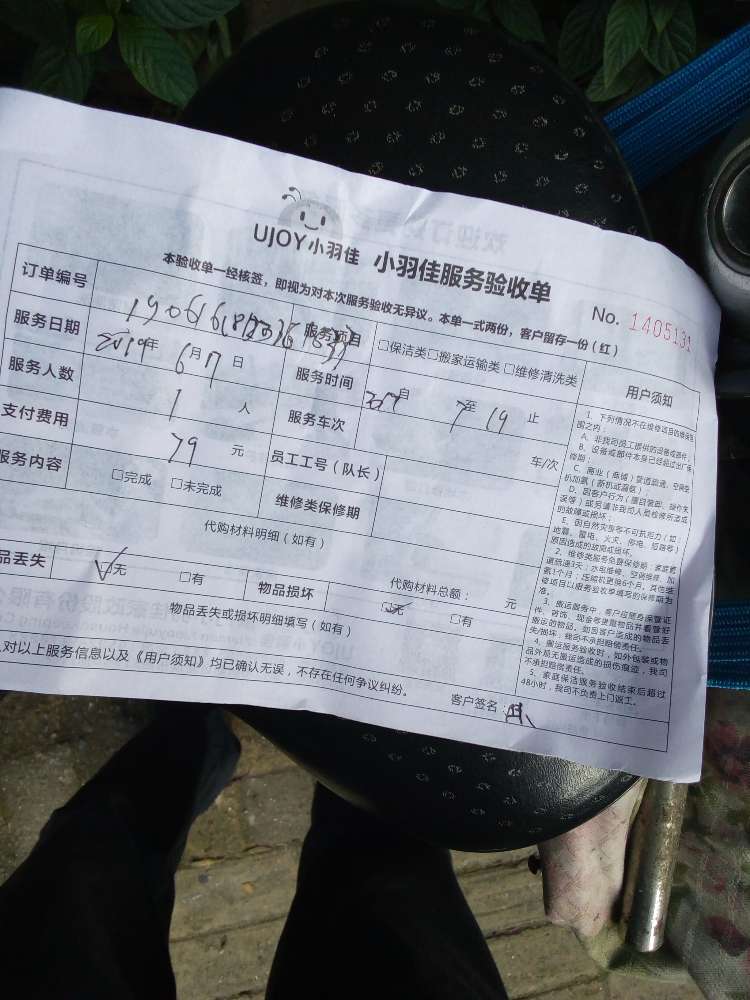 UJOY小羽佳 小羽佳服务验收单
No. 1405131
本验收单一经核签，即视为对本次服务验收无异议。本单一式两份，客户留存一份（红）
订单编号
服务项目 □保洁类□搬家运输类 □维修清洗类
服务日期 2019年 6月17日
服务时间 自 至 19 止
服务人数 1 人
服务车次 车/次
支付费用 79 元
员工工号（队长）
服务内容 □完成 □未完成
维修类保修期
代购材料明细（如有）
代购材料总额： 元
品丢失 ☑无 □有
物品损坏 ☑无 □有
物品丢失或损坏明细填写（如有）
对以上服务信息以及《用户须知》均已确认无误，不存在任何争议纠纷。
客户签名：
用户须知
1、下列情况不在维修项目的维保范
围之内：
A、非我司员工提供的设备或器件；
B、设备或部件本身已经超过出厂保
修期；
C、商业（商铺）管道疏通、空调受
机加氟（新机或漏氟）
D、因客户行为（擅自装卸、操作失
误等）或另请非我司人员检修所造成
的故障或损坏；
E、因自然灾害等不可抗拒力（如
地震、雷电、火灾、停电、短路等）
原因造成的故障或损坏。
2、维修类服务免费保修期：家庭管
道疏通3天；水电维修、空调维修、加
氟1个月；压缩机更换6个月，其他维
修项目以服务验收单填写的保修期为
准。
3、搬运服务中，客户应随身保管证
件、首饰、现金等贵重物品并看管好
搬运的物品，如因客户造成的物品丢
失/损坏，我司不承担赔偿责任。
4、搬运服务验收时，如外包装或物
品外观无搬运造成的损伤痕迹，我司
不承担赔偿责任。
5、家庭保洁服务验收结束后超过
48小时，我司不负责上门返工。